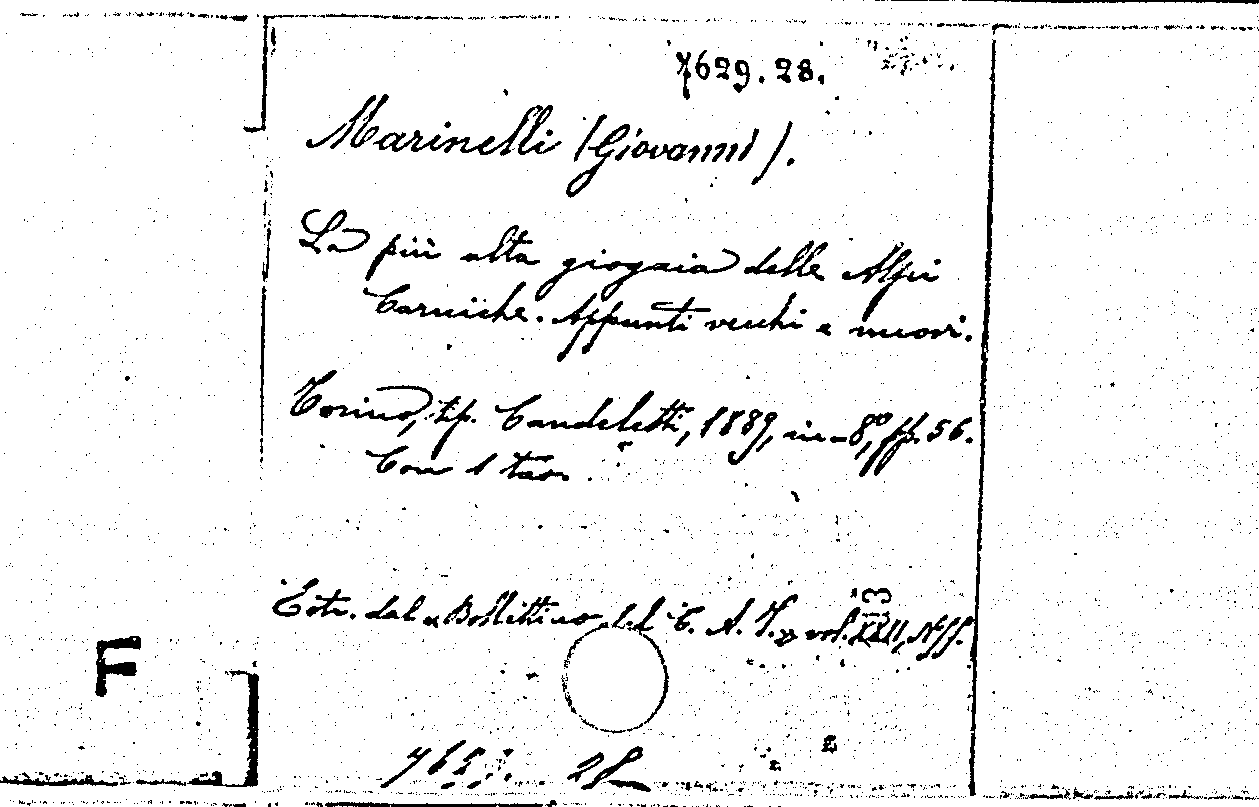 7629.28.
Marinelli (Giovanni).
La più alta giogaia delle Alpi
Carniche. Appunti vecchi e nuovi.
Torino, tip. Candeletti, 1889, in-8º, pp. 56.
Con 1 tav.
Estr. dal «Bollettino del C. A. I.» vol. XXII,
F
28